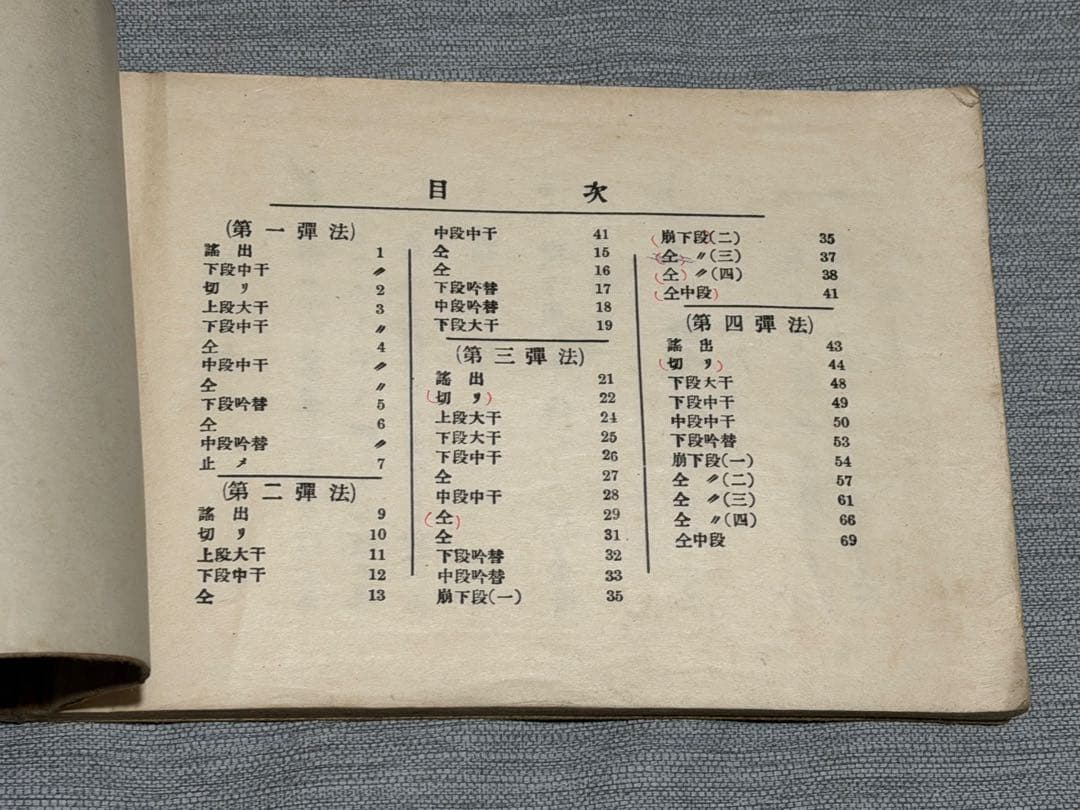 目次
(第一彈法)
謠出 1
下段中干 〃
切リ 2
上段大干 3
下段中干 〃
仝 4
中段中干 〃
仝 〃
下段吟替 5
仝 6
中段吟替 〃
止メ 7
(第二彈法)
謠出 9
切リ 10
上段大干 11
下段中干 12
仝 13
中段中干 41
仝 15
仝 16
下段吟替 17
中段吟替 18
下段大干 19
(第三彈法)
謠出 21
(切リ) 22
上段大干 24
下段大干 25
下段中干 26
仝 27
中段中干 28
(仝) 29
仝 31
下段吟替 32
中段吟替 33
崩下段(一) 35
(崩下段(二) 35
(仝)〃(三) 37
(仝)〃(四) 38
(仝中段) 41
(第四彈法)
謠出 43
(切リ) 44
下段大干 48
下段中干 49
中段中干 50
下段吟替 53
崩下段(一) 54
仝〃(二) 57
仝〃(三) 61
仝〃(四) 66
仝中段 69